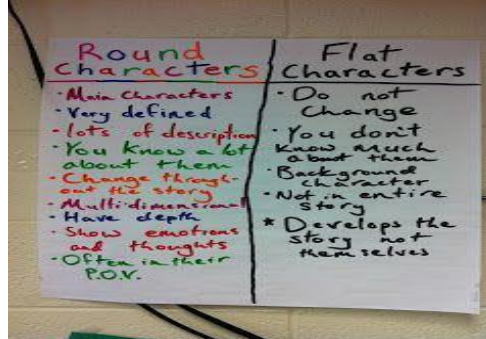 Round
Characters
· Main Characters
· Very defined
· lots of description
· You know a lot
about them
· Change through-
out the story
· Multidimensional
· Have depth
· Show emotions
and thoughts
· Often in their
P.O.V.
Flat
Characters
· Do not
change
· You don't
know much
about them
· Background
character
· Not in entire
story
* Develops the
story not
themselves